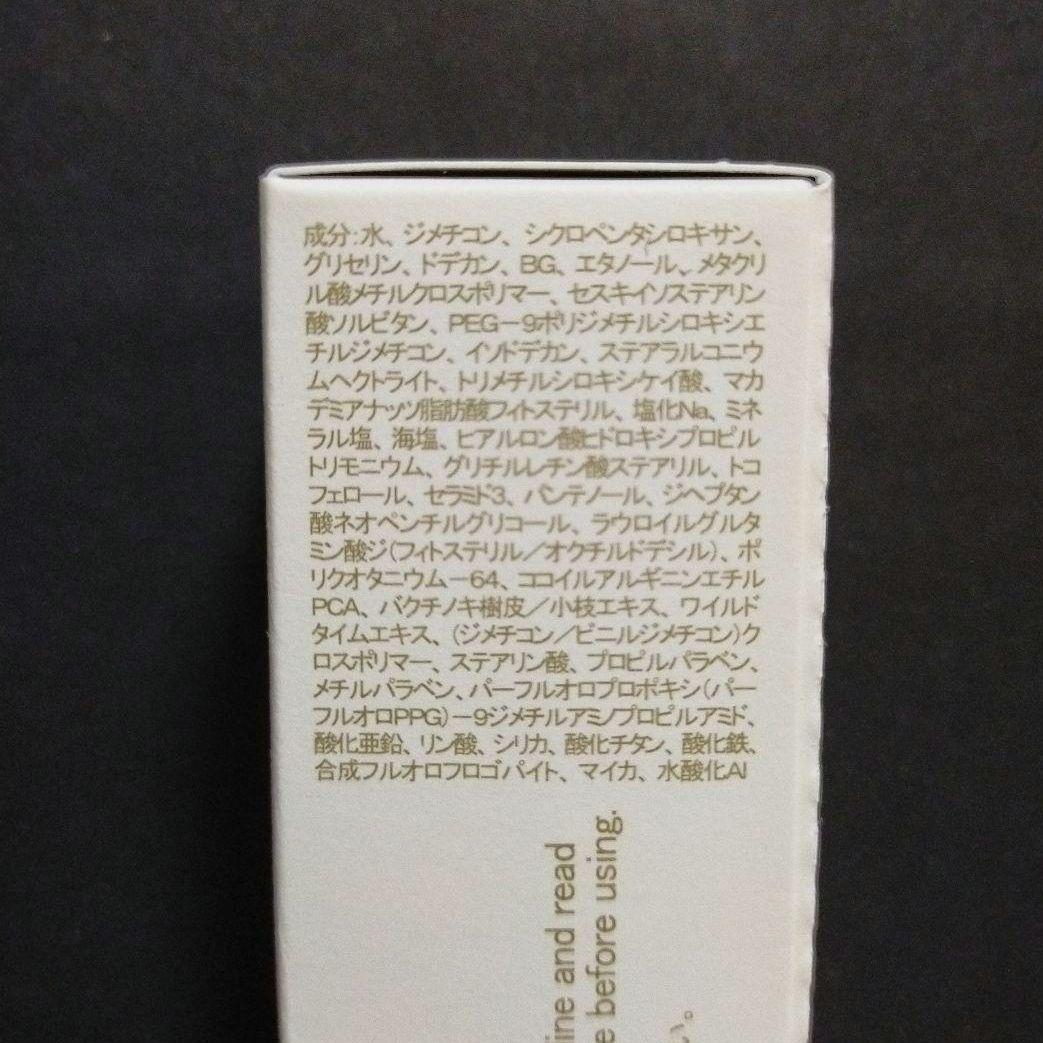 成分:水、ジメチコン、シクロペンタシロキサン、
グリセリン、ドデカン、BG、エタノール、メタクリ
ル酸メチルクロスポリマー、セスキイソステアリン
酸ソルビタン、PEG－9ポリジメチルシロキシエ
チルジメチコン、イソドデカン、ステアラルコニウ
ムヘクトライト、トリメチルシロキシケイ酸、マカ
デミアナッツ脂肪酸フィトステリル、塩化Na、ミネ
ラル塩、海塩、ヒアルロン酸ヒドロキシプロピル
トリモニウム、グリチルレチン酸ステアリル、トコ
フェロール、セラミド3、パンテノール、ジヘプタン
酸ネオペンチルグリコール、ラウロイルグルタ
ミン酸ジ(フィトステリル／オクチルドデシル)、ポ
リクオタニウム－64、ココイルアルギニンエチル
PCA、バクチノキ樹皮／小枝エキス、ワイルド
タイムエキス、(ジメチコン／ビニルジメチコン)ク
ロスポリマー、ステアリン酸、プロピルパラベン、
メチルパラベン、パーフルオロプロポキシ(パー
フルオロPPG)－9ジメチルアミノプロピルアミド、
酸化亜鉛、リン酸、シリカ、酸化チタン、酸化鉄、
合成フルオロフロゴパイト、マイカ、水酸化Al
ine and read
e before using.
い。